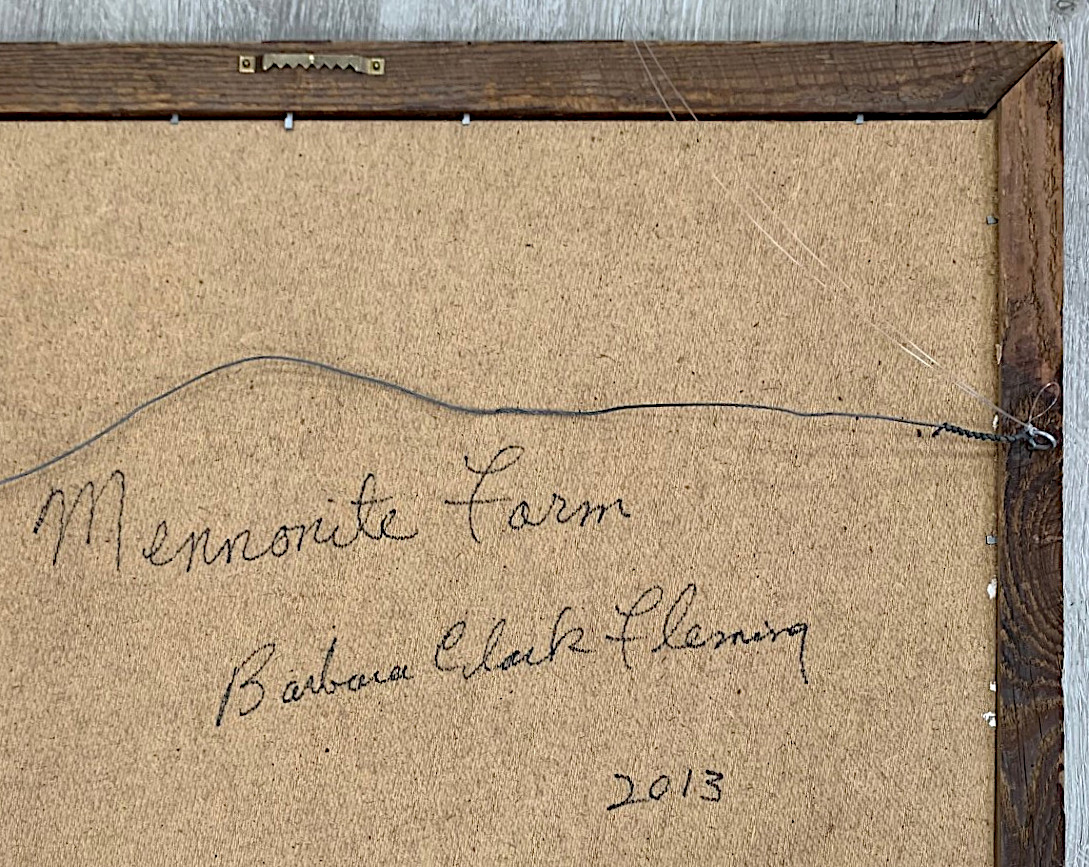 Mennonite Farm
Barbara Clark Fleming
2013